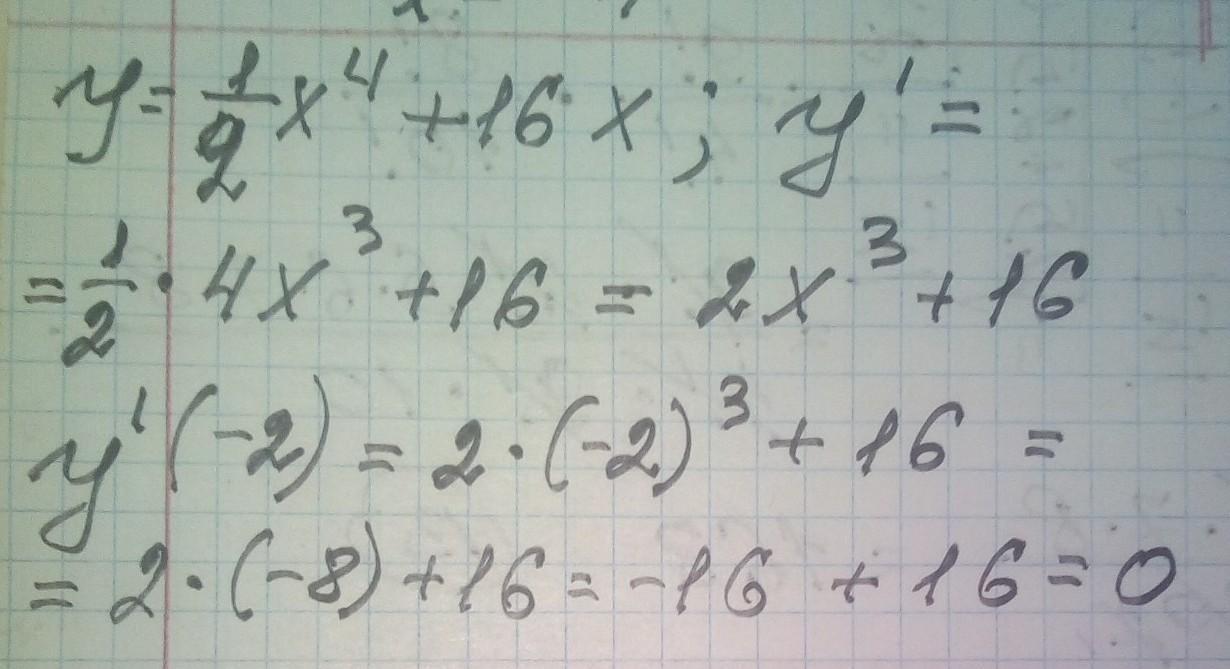 y = 1/2 x⁴ + 16x ; y' =
= 1/2 · 4x³ + 16 = 2x³ + 16
y'(-2) = 2 · (-2)³ + 16 =
= 2 · (-8) + 16 = -16 + 16 = 0